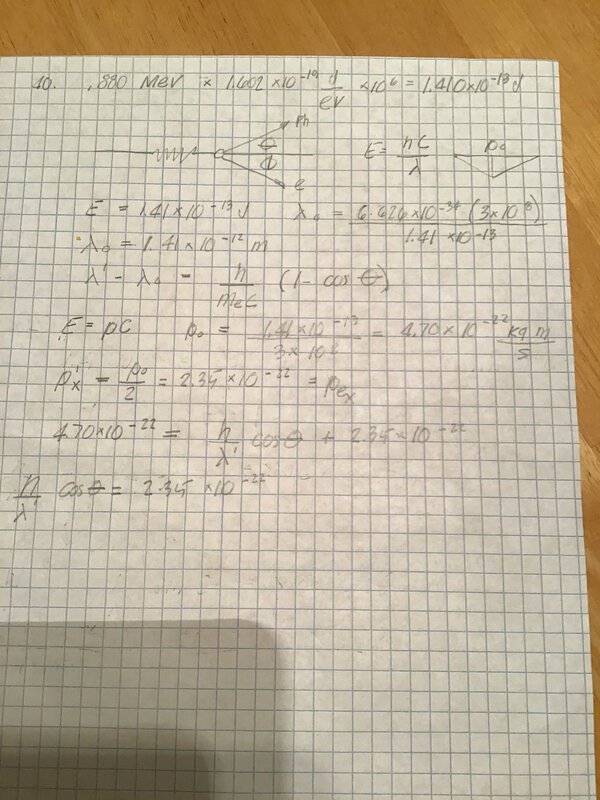 10. .880 MeV × 1.602 ×10⁻¹⁹ J/eV ×10⁶ = 1.410×10⁻¹³ J
Ph
θ
ϕ
e
E = hC/λ
p₀
E = 1.41×10⁻¹³ J λ₀ = 6.626×10⁻³⁴ (3×10⁸) / 1.41 ×10⁻¹³
λ₀ = 1.41×10⁻¹² m
λ' - λ₀ = h/meC (1 - cos θ)
E = pC p₀ = 1.41×10⁻¹³ / 3×10⁸ = 4.70×10⁻²² kg m/s
p'x = p₀/2 = 2.35 ×10⁻²² = pex
4.70×10⁻²² = h/λ' cosθ + 2.35×10⁻²²
h/λ' cosθ = 2.35 ×10⁻²²